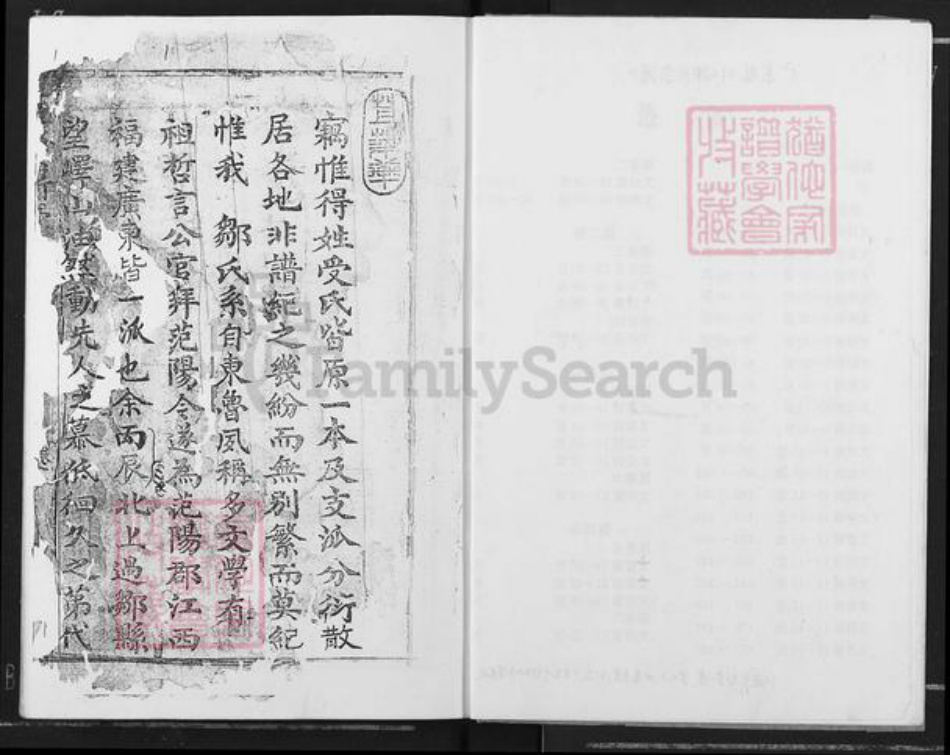 竊惟得姓受氏皆原一本及支派分衍散
居各地非譜紀之幾紛而無別繁而莫紀
惟我 鄒氏系自東魯夙稱多文學有
祖哲言公官拜范陽令遂為范陽郡江西
福建廣東皆一派也余丙辰北上過鄒縣
望嶧山油然動先人之慕低徊久之第代
FamilySearch
猶他家
譜學會
收藏